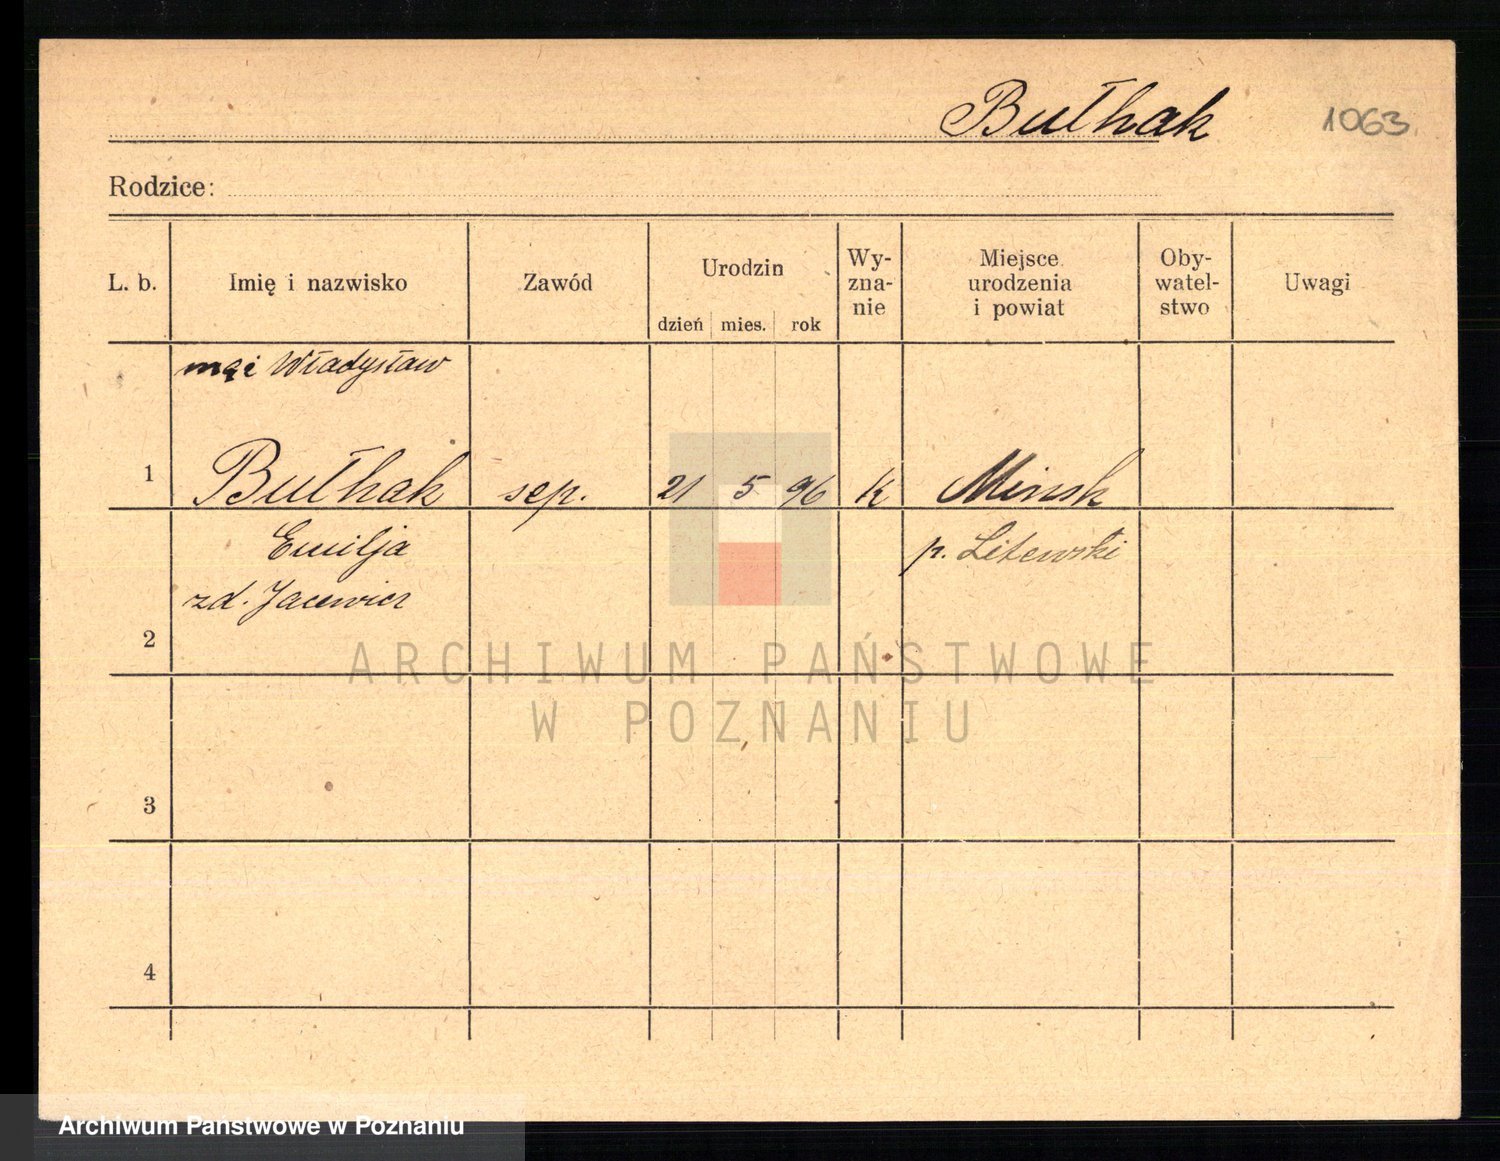 Bułhak
1063
Rodzice:
L. b.
Imię i nazwisko
Zawód
Urodzin
dzień mies. rok
Wy-
zna-
nie
Miejsce
urodzenia
i powiat
Oby-
watel-
stwo
Uwagi
mąż Władysław
1 Bułhak sep. 21 5 96 k Mińsk
Emilja p. Litewski
zd. Jacewicz
2
3
4
ARCHIWUM PAŃSTWOWE
W POZNANIU
Archiwum Państwowe w Poznaniu